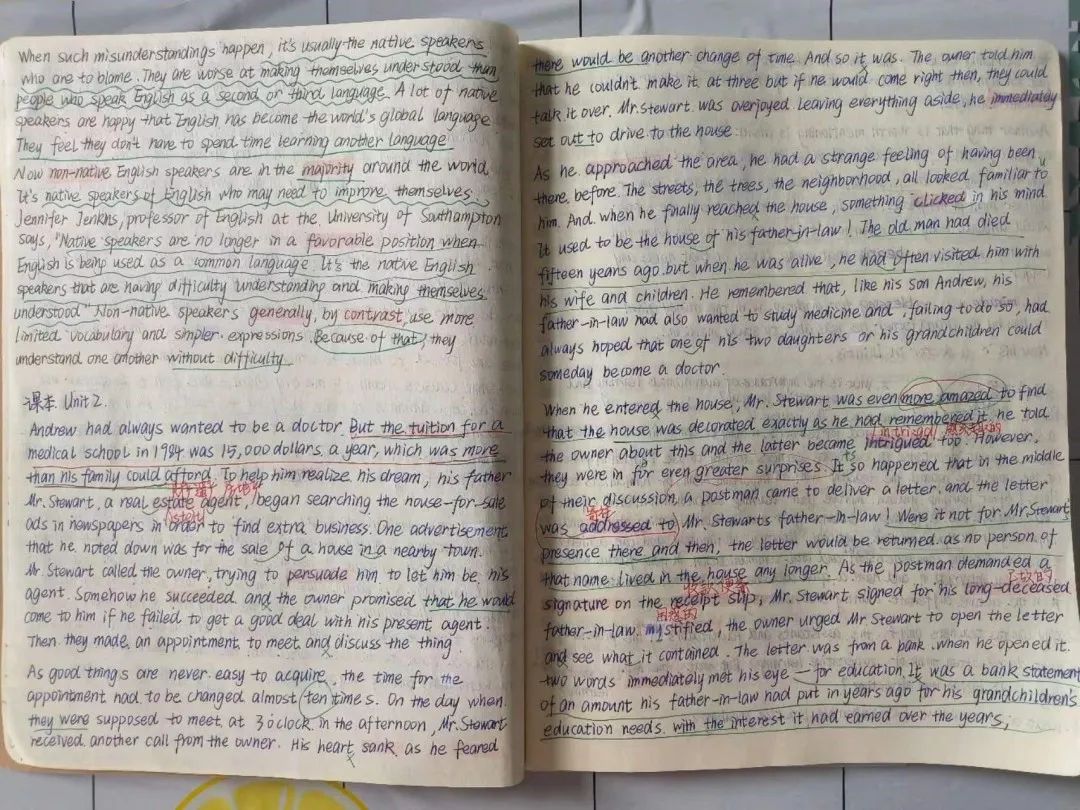 When such misunderstandings happen, it's usually the native speakers
who are to blame. They are worse at making themselves understood than
people who speak English as a second or third language. A lot of native
speakers are happy that English has become the world's global language.
They feel they don't have to spend time learning another language
Now non-native English speakers are in the majority around the world.
It's native speakers of English who may need to improve themselves.
Jennifer Jenkins, professor of English at the University of Southampton
says, "Native speakers are no longer in a favorable position when
English is being used as a common language. It's the native English
speakers that are having difficulty understanding and making themselves
understood" Non-native speakers generally, by contrast, use more
limited vocabulary and simpler expressions. Because of that, they
understand one another without difficulty.
课本 Unit 2.
Andrew had always wanted to be a doctor. But the tuition for a
medical school in 1984 was 15,000 dollars a year, which was more
than his family could afford. To help him realize his dream, his father
Mr. Stewart, a real estate agent, began searching the house-for-sale
ads in newspapers in order to find extra business. One advertisement
that he noted down was for the sale of a house in a nearby town.
Mr. Stewart called the owner, trying to persuade him to let him be his
agent. Somehow he succeeded and the owner promised that he would
come to him if he failed to get a good deal with his present agent.
Then they made an appointment to meet and discuss the thing.
As good things are never easy to acquire, the time for the
appointment had to be changed almost ten times. On the day when
they were supposed to meet at 3 o'clock in the afternoon, Mr. Stewart
received another call from the owner. His heart sank as he feared
there would be another change of time. And so it was. The owner told him
that he couldn't make it at three but if he would come right then, they could
talk it over. Mr. Stewart was overjoyed. Leaving everything aside, he immediately
set out to drive to the house
As he approached the area, he had a strange feeling of having been
there before. The streets, the trees, the neighborhood, all looked familiar to
him. And when he finally reached the house, something "clicked" in his mind.
It used to be the house of his father-in-law! The old man had died
fifteen years ago but when he was alive, he had often visited him with
his wife and children. He remembered that, like his son Andrew, his
father-in-law had also wanted to study medicine and, failing to do so, had
always hoped that one of his two daughters or his grandchildren could
someday become a doctor.
When he entered the house, Mr. Stewart was even more amazed to find
that the house was decorated exactly as he had remembered it. he told
the owner about this and the latter became intrigued too. However,
they were in for even greater surprises. It so happened that in the middle
of their discussion, a postman came to deliver a letter. and the letter
寄往
was addressed to Mr. Stewarts father-in-law! Were it not for Mr. Stewart's
presence there and then, the letter would be returned as no person of
that name lived in the house any longer. As the postman demanded a
signature on the receipt slip, Mr. Stewart signed for his long-deceased
father-in-law. mystified, the owner urged Mr Stewart to open the letter
and see what it contained. The letter was from a bank. when he opened it.
two words immediately met his eye — for education. It was a bank statement
of an amount his father-in-law had put in years ago for his grandchildren's
education needs. with the interest it had earned over the years,